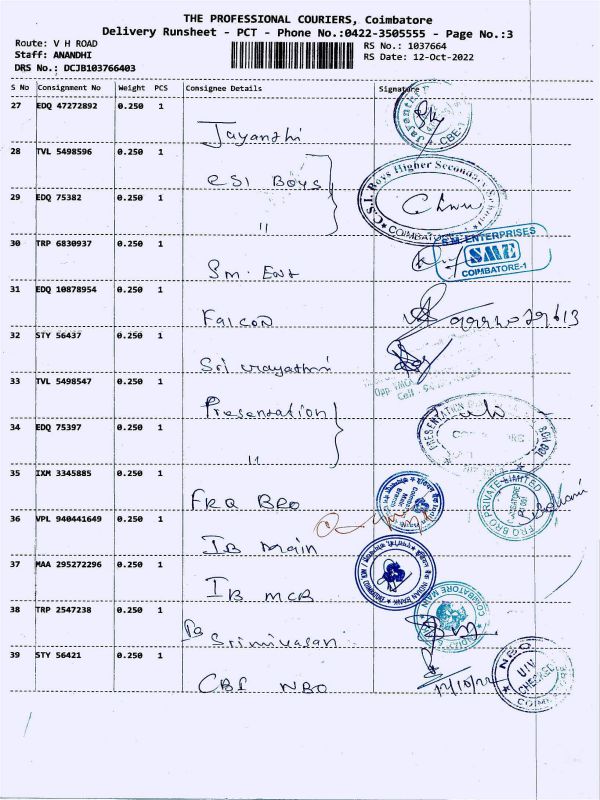 THE PROFESSIONAL COURIERS, Coimbatore
Delivery Runsheet - PCT - Phone No.:0422-3505555 - Page No.:3
Route: V H ROAD
Staff: ANANDHI
DRS No.: DCJB103766403
RS No.: 1037664
RS Date: 12-Oct-2022
S No Consignment No Weight PCS Consignee Details Signature
27 EDQ 47272892 0.250 1
Jayanthi
CBE-1
28 TVL 5498596 0.250 1
CSI Boys
C.S.I. Boys Higher Secondary School
COIMBATORE
29 EDQ 75382 0.250 1
"
30 TRP 6830937 0.250 1
SM. Ent
S.M. ENTERPRISES
SME
COIMBATORE-1
31 EDQ 10878954 0.250 1
Falcon
32 STY 56437 0.250 1
Sri
Opp YMCA
Cell
33 TVL 5498547 0.250 1
Presentation
PRESENTATION
34 EDQ 75397 0.250 1
"
35 IXM 3345885 0.250 1
FRQ BRO
FRQ BRO PRIVATE LIMITED
36 VPL 940441649 0.250 1
IB Main
37 MAA 295272296 0.250 1
IB MCB
INDIAN BANK
38 TRP 2547238 0.250 1
Srinivasan
COIMBATORE MAIN
39 STY 56421 0.250 1
CBI NBO
12/10/22
NBO
U/V
CHECKED